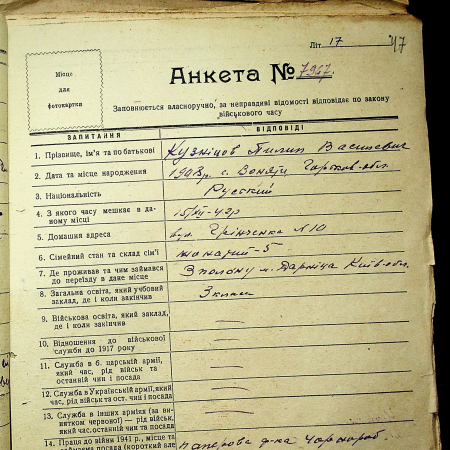 Літ. 17
47
Місце
для
фотокартки
Анкета № 7967.
Заповнюється власноручно, за неправдиві відомості відповідає по закону
військового часу
ЗАПИТАННЯ ВІДПОВІДІ
1. Прізвище, ім'я та по батькові Кузніцов Пилип Васильевич
2. Дата та місце народження 1903р. с. Харков. обл.
3. Національність Русский
4. З якого часу мешкає в да-
ному місці 15/XII-42р
5. Домашня адреса вул. Грінченка №10
6. Сімейний стан та склад сім'ї жонатий - 5
7. Де проживав та чим займався
до переїзду в дане місце З полону м. Дарніца Київ. обл.
8. Загальна освіта, який учбовий
заклад, де і коли закінчив 3 класи
9. Військова освіта, який заклад,
де і коли закінчив
10. Відношення до військової
служби до 1917 року
11. Служба в б. царській армії,
який час, рід військ та
останній чин і посада
12. Служба в Українській армії, який
час, рід військ та ост. чин і посада
13. Служба в інших арміях (за ви-
нятком червоної) — рід військ,
який час, останній чин та посада
14. Праця до війни 1941 р., місце та
займана посада (короткий опис паперова ф-ка